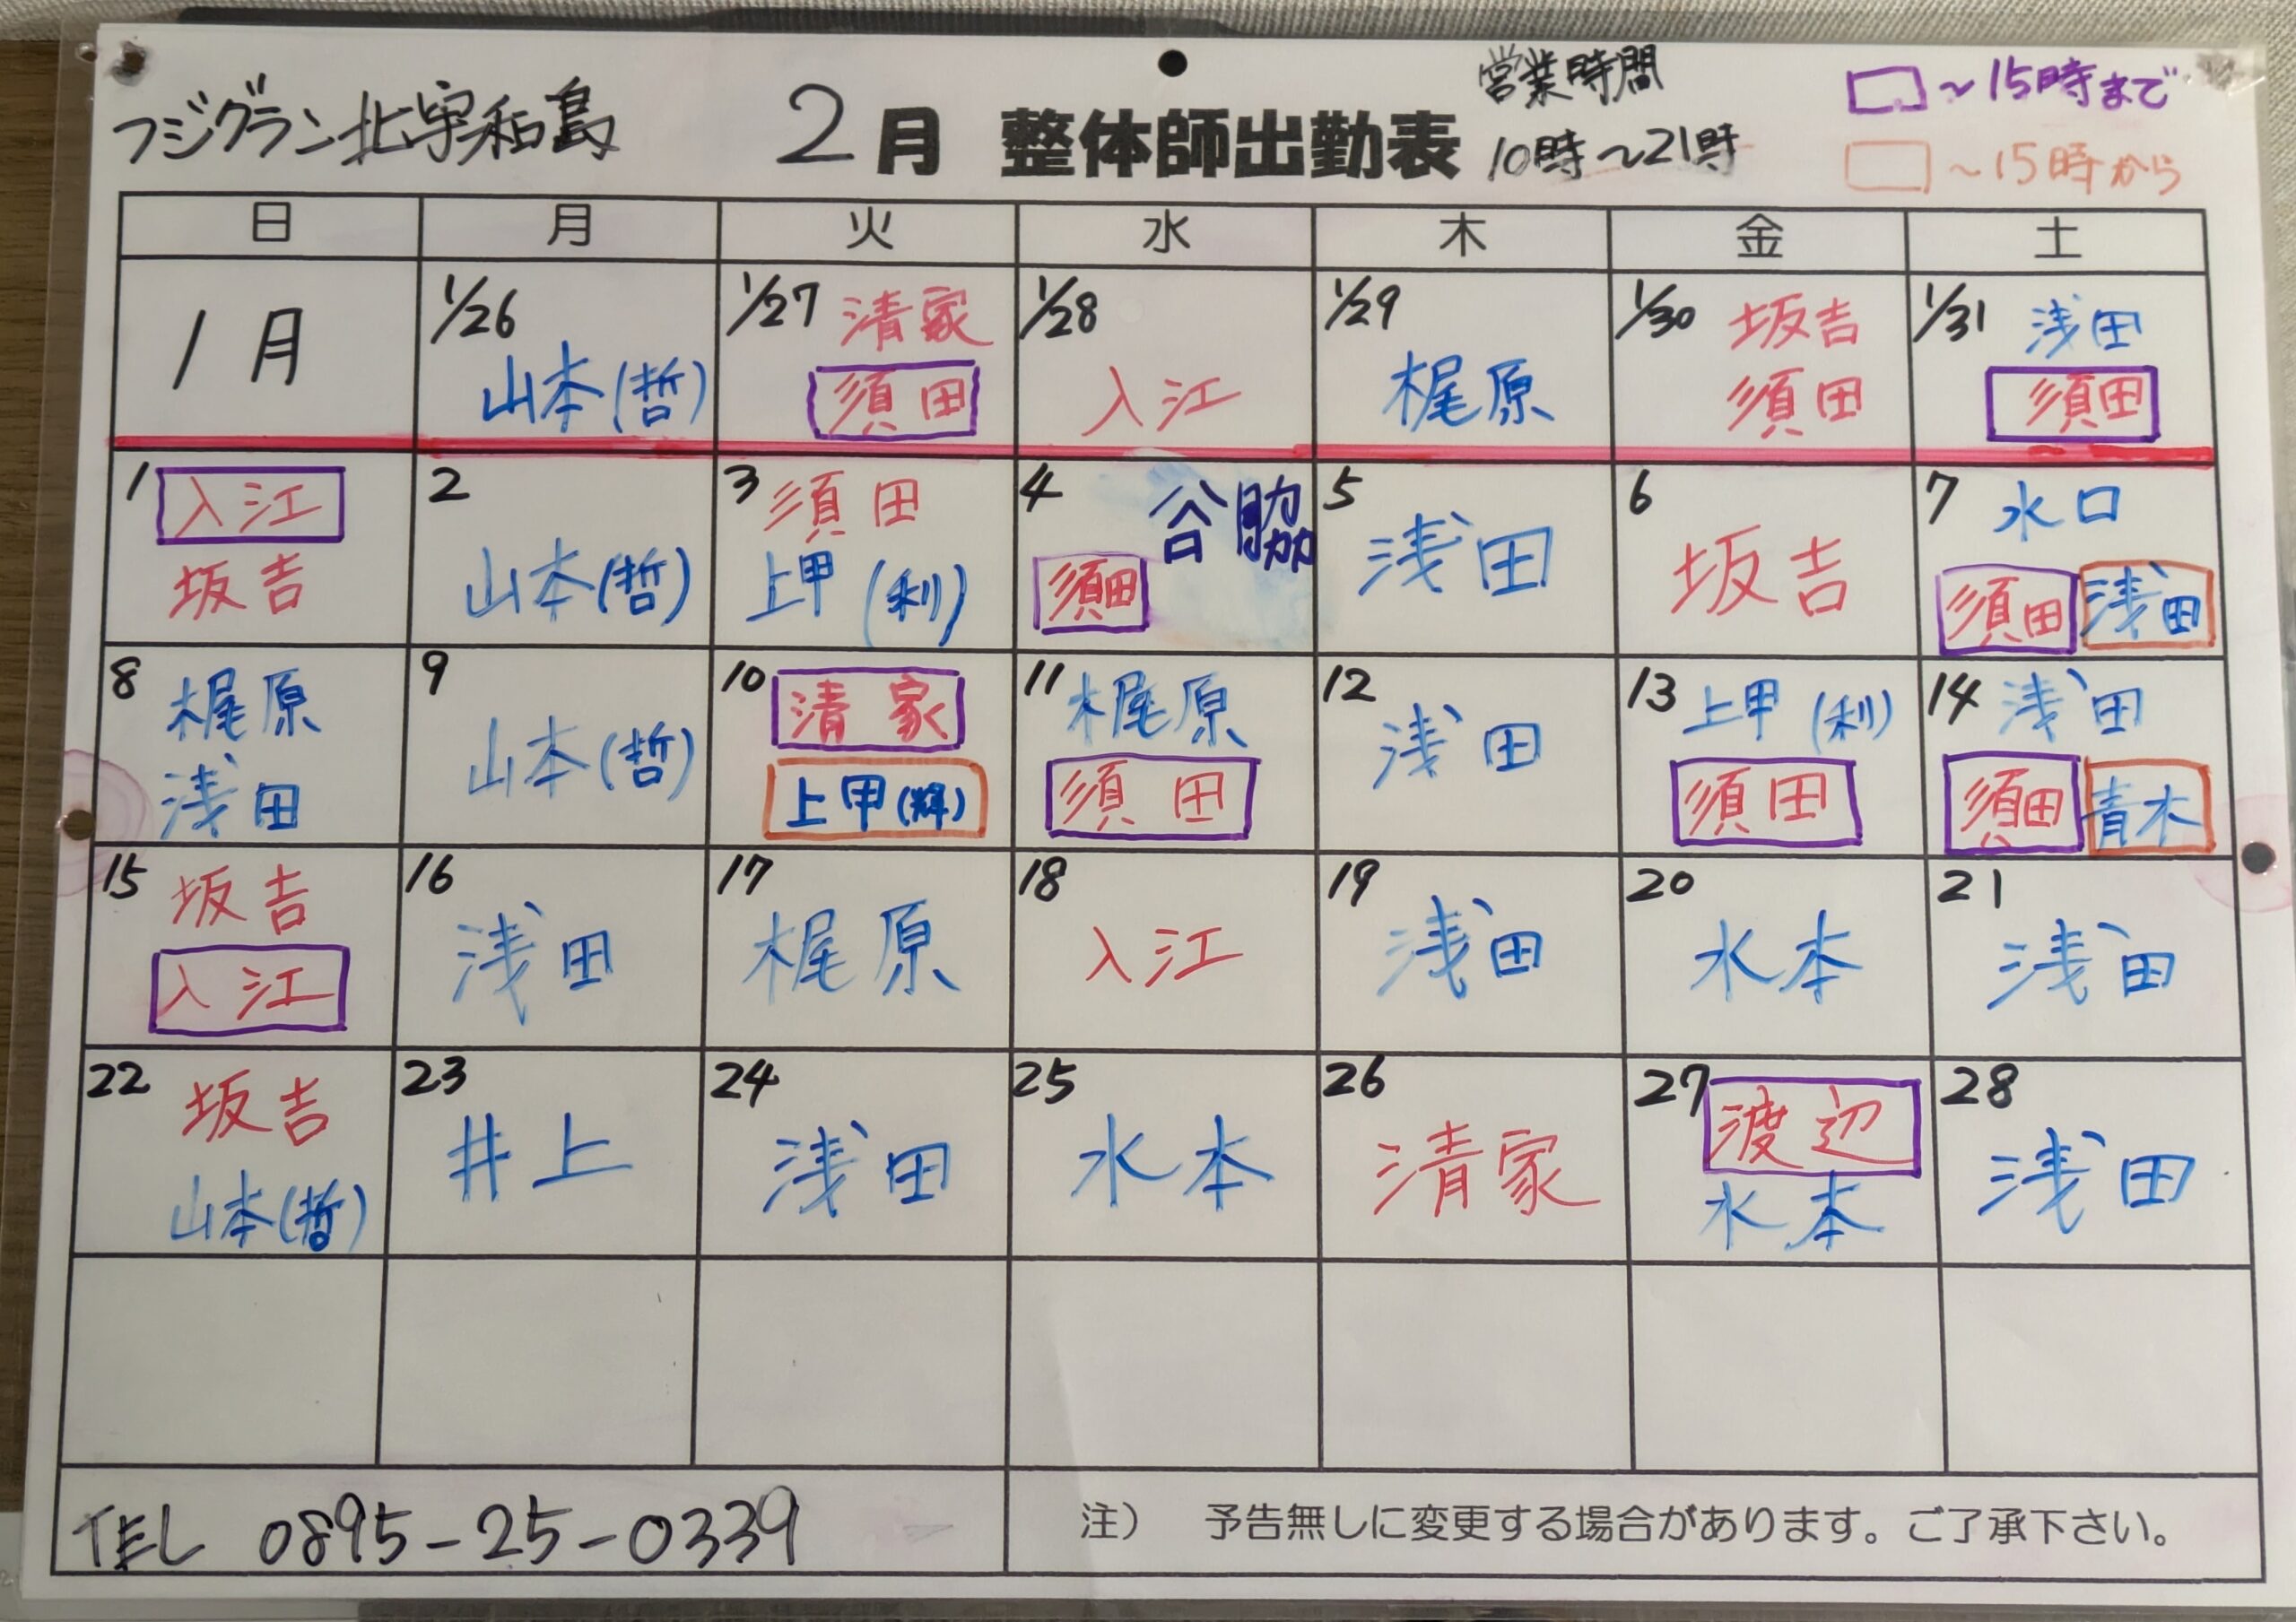 フジグラン北宇和島
2月 整体師出勤表
営業時間
10時～21時
～15時まで
～15時から
日 月 火 水 木 金 土
1月
1/26
山本(哲)
1/27 清家
須田
1/28
入江
1/29
梶原
1/30 坂吉
須田
1/31 浅田
須田
1 入江
坂吉
2
山本(哲)
3 須田
上甲(利)
4 谷脇
須田
5
浅田
6
坂吉
7 水口
須田 浅田
8 梶原
浅田
9
山本(哲)
10 清家
上甲(輝)
11 梶原
須田
12
浅田
13 上甲(利)
須田
14 浅田
須田 青木
15 坂吉
入江
16
浅田
17
梶原
18
入江
19
浅田
20
水本
21
浅田
22 坂吉
山本(哲)
23
井上
24
浅田
25
水本
26
清家
27 渡辺
水本
28
浅田
TEL 0895-25-0339
注） 予告無しに変更する場合があります。ご了承下さい。